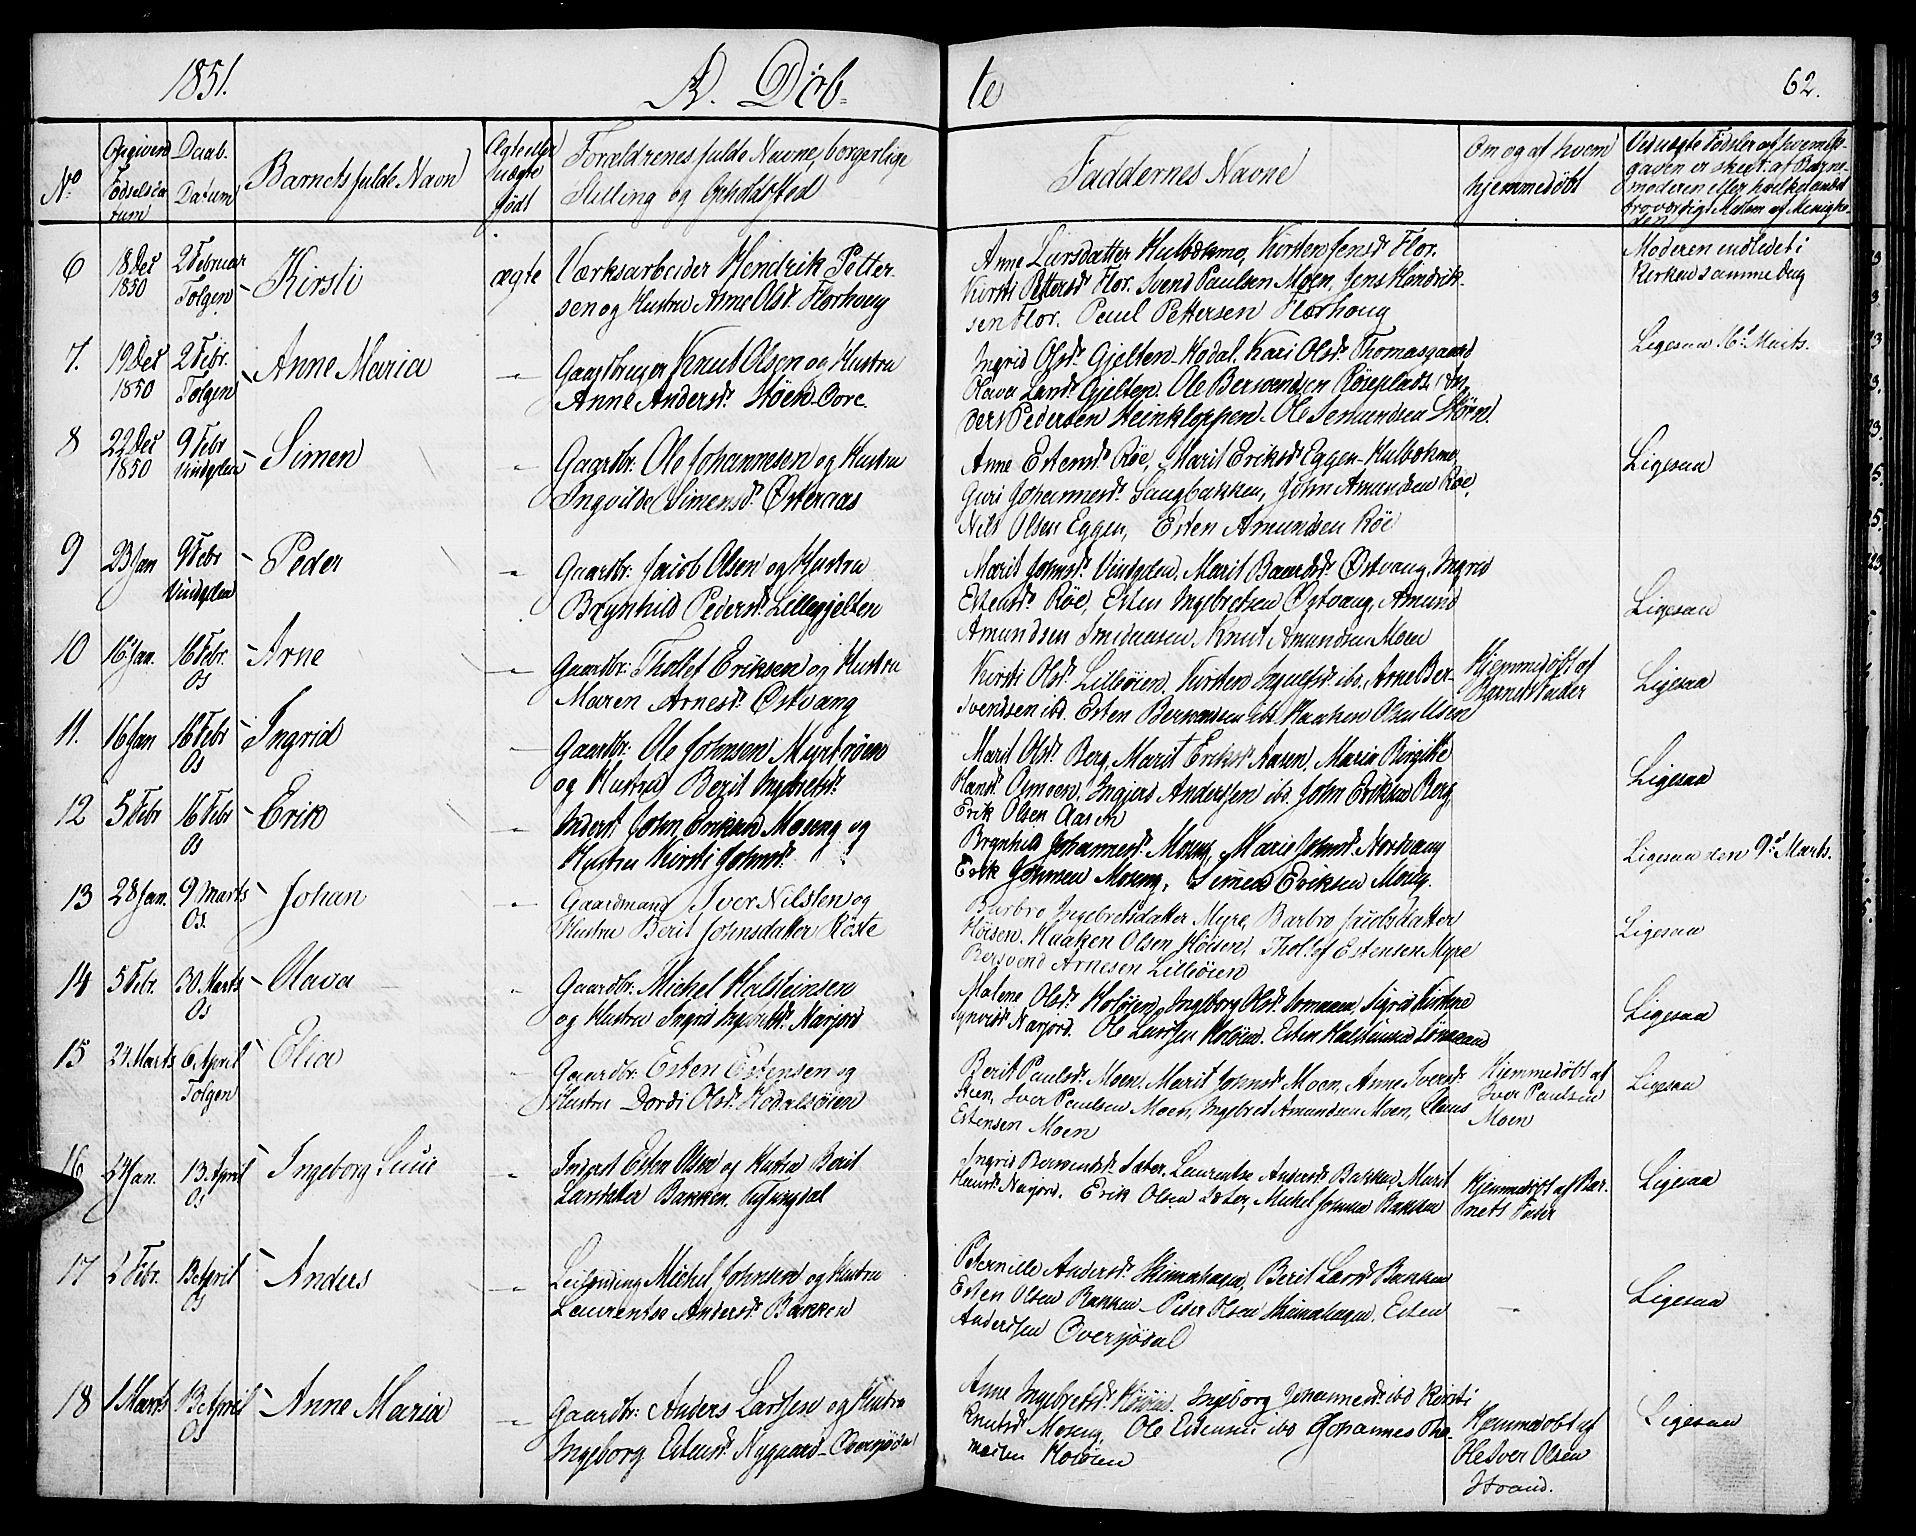 1851.
A. Døb-
te
62.
No
Opgiven Fødselsda-
tum
Daab.
Datum
Barnets fulde Navn
Ægte eller
uægte
født
Forældrenes fulde Navne, borgerlige
Stilling og Opholdssted
Faddernes Navne
Om og af hvem
hjemmedøbt
Ved uægte Fødsler af hvem Op-
gaven er skeet af Barne-
moderen eller hvilket andet
troværdigt Medlem af Menighe-
den
6
18 Dec
1850
2 Februar
Tolgen
Kirsti
ægte
Værksarbeider Hendrik Petter-
sen og Hustru Anne Olsd. Florhoug
Anne Larsdatter Hulbækmo, Kirsten Jensd. Flor.
Kirsti Pettersd. Flor. Svend Paulsen Moen, Jens Hendrik-
sen Flor. Paul Pettersen Florhoug
Moderen indledet i
Kirken samme Dag
7.
19 Dec
1850
2 Febr.
Tolgen
Anne Maria
Gaardbruger Knud Olsen og Hustru
Anne Andersd. Støen Øvre.
Ingrid Olsd. Gjelten Hodal. Kari Olsd. Thomasgaard
Olava Larsd. Gjelten. Ole Bersvendsen Røseplads, An-
ders Pedersen Steinkloppen. Ole Semundsen Støen.
Ligesaa 16d Marts.
8
22 Dec
1850
9 Febr
Vindgelen
Simen
Gaardbr. Ole Johannesen og Hustru
Ingvilde Simensd. Østeraas
Anne Estensd. Røe, Marit Eriksd. Eggen Hulbækmo
Guri Johannesd. Haugbakken, John Amundsen Røe,
Nils Olsen Eggen, Esten Amundsen Røe
Ligesaa
9
23 Jan
9 Febr
Vindgelen
Peder
Gaardbr. Jacob Olsen og Hustru
Brynhild Pedersd. Lillegjelten
Marit Johnsd. Vindgelen, Marit Baardsd. Østvang, Ingrid
Estensd. Røe, Esten Ingebretsen Østvang, Amund
Amundsen Smedaasen, Knut Amundsen Moen
Ligesaa
10
16 Jan.
16 Febr.
Os
Arne
Gaardbr. Thollef Eriksen og Hustru
Maren Arnesd. Østvang
Kirsti Olsd. Lilleøien, Kirsten Ingulfsd. ibd. Arne Ber-
svendsen ibd. Esten Bersvendsen ibd. Haaken Olsen
Hjemmedøbt af
Barnets Fader
Ligesaa
11.
16 Jan
16 Febr
Os
Ingrid
Gaardbr. Ole Johnsen Myrtrøen
og Hustru Berit Ingebretsd.
Marit Olsd. Berg, Marit Eriksd. Aasen, Maria Birgitte
Hansd. Osmoen, Ingjerd Andersen ibd. John Eriksen Berg
Erik Olsen Aasen
Ligesaa
12
5 Febr
16 Febr
Os
Erik
Inderst. John Eriksen Moseng og
Hustru Kirsti Johnsd.
Brynhild Johannesd. Moseng, Marie Johnsd. Nordvang
Erik Johnsen Moseng, Simen Eriksen Moseng.
Ligesaa den 9d Marts.
13
28 Jan.
9 Marts
Os.
Johan
Gaardmand Iver Nilsen og
Hustru Berit Johnsdatter Røste
Barbro Ingebretsdatter Myre, Barbro Jacobsdatter
Høisen. Haaken Olsen Høisen, Thollef Estensen Myre
Bersvend Arnesen Lilleøien
Ligesaa
14
5 Febr.
30 Marts
Os
Olava
Gaardbr. Michel Halsteinsen
og Hustru Ingrid Ingebretsd. Narjord
Malene Olsd. Holøien, Ingeborg Olsd. Sigrid Kirstine
Narjord. Ole Larssen Holøien. Esten Halsteinsen
Ligesaa
15
24 Marts
6 April
Tolgen
Elia
Gaardbr. Esten Estensen og
Hustru Dordi Olsd. Hodalsøien
Berit Paulsd. Moen, Marit Johnsd. Moen, Anne Iversd.
Steen, Iver Paulsen Moen, Ingebret Amundsen Moen, Claus
Estensen Moen
Hjemmedøbt af
Iver Paulsen
Moen
Ligesaa
16
24 Jan.
13 April
Os
Ingeborg Lucie
Inderst Esten Olsen og Hustru Berit
Larsdatter Bakken,
Ingrid Bersvendsd. Sæter, Laurentse Andersd. Bakken, Marit
Hansd. Narjord. Erik Olsen Sæter, Michel Johnsen Bakken
Hjemmedøbt af Bar-
nets Fader
Ligesaa
17
2 Febr.
13 April
Os
Anders
Leilænding Michel Johnsen og Hustru
Laurentse Andersd. Bakken
Peternille Andersd. Skinnhagen, Berit Larsd. Bakken
Esten Olsen Bakken Peder Olsen Skinnhagen, Esten
Anderssen Oversjødal
Ligesaa
18
1 Marts
13 April
Os
Anne Maria
Gaardbr. Anders Larssen og Hustru
Ingeborg Estensd. Nygaard Oversjødal
Anne Ingebretsd. Holøien, Ingeborg Johannesd. ibd Kirsti
Knutsd. Moseng, Ole Estensen ibd Johannes Tho-
masen Holøien
Hjemmedøbt af
Ole Iver Olsen
Strand.
Ligesaa